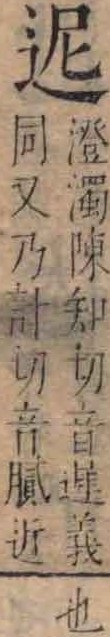 迡
澄濁陳知切音遲義
同又乃計切音膩近
也